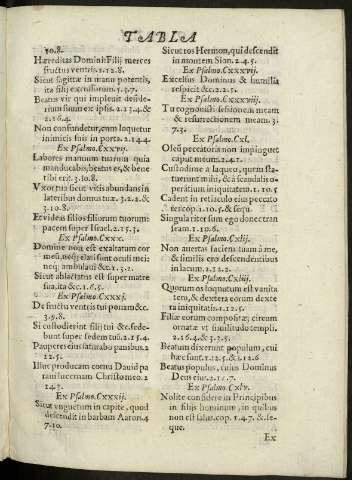 TABLA
10.8.
Hæreditas Domini: Filij merces
fructus ventris. 2.12.8.
Sicut sagittæ in manu potentis,
ita filij excussorum. 3.3.7.
Beatus vir qui impleuit deside-
rium suum ex ipsis. 2.2 3.4.&
2.16.4.
Non confundetur, cum loquetur
inimicis suis in porta. 2.14.4.
Ex Psalmo. Cxxvij.
Labores manuum tuarum quia
manducabis, beatus es, & bene
tibi erit. 3.10.8.
Vxor tua sicut vitis abundans in
lateribus domus tuæ. 3.2.2. &
3.10.8.
Et videas filios filiorum tuorum:
pacem super Israel. 2.15.3.
Ex Psalmo. Cxxx.
Domine non est exaltatum cor
meũ, neq; elati sunt oculi mei:
neq; ambulaui &c. 1.3.2.
Sicut ablactatus est super matre
sua, ita &c. 1.6.5.
Ex Psalmo. Cxxxj.
De fructu ventris tui ponam &c.
3.9.8.
Si custodierint filij tui &c. sede-
bunt super sedem tuã. 2.15.4.
Pauperes eius saturabo panibus. 2
22.5.
Illuc producam cornu Dauid pa
raui lucernam Christo meo. 2
24.3.
Ex Psalmo. Cxxxij.
Sicut vnguetum in capite, quod
descendit in barbam Aaron. 4
7.10.
Sicut ros Hermon, qui descendit
in montem Sion. 2.4.5.
Ex Psalmo. Cxxxvij.
Excelsus Dominus & humilia
respicit &c. 2.2.5.
Ex Psalmo. Cxxxviij.
Tu cognouisti sessionem meam
& resurrectionem meam. 3.
7.3.
Ex Psalmo. Cxl.
Oleũ peccatoris non impinguet
caput meum. 2.4.1.
Custodi me a laqueo, quem sta-
tuerunt mihi, & à scandalis o-
perãtium iniquitatem. 1.10.5
Cadent in retiaculo eius peccato
res: cop. 1.10.5. & sequ.
Singulariter sum ego donec tran
seam. 1.10.6.
Ex Psalmo. Cxlij.
Non auertas faciem tuam à me,
& similis ero descendentibus
in lacum. 2.12.2.
Ex Psalmo. Cxliij.
Quorum os loquutum est vanita
tem, & dextera eorum dexte
ra iniquitatis. 1.12.5.
Filiæ eorum compositæ; circum
ornatæ vt similitudo templi.
2.16.4. & 3.3.5.
Beatum dixerunt populum, cui
hæc sunt. 1.12.5. & 1.2.6
Beatus populus, cuius Dominus
Deus eius. 2.11.7.
Ex Psalmo. Cxlv.
Nolite confidere in Principibus
in filijs hominum, in quibus
non est salus. cop. 1.4.7. & se-
que.
Ex